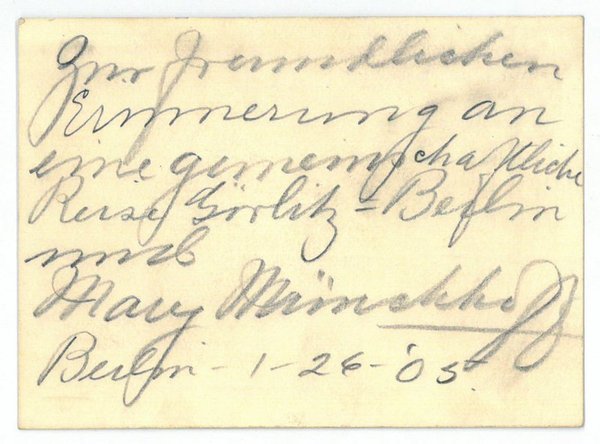 Zur freundlichen
Erinnerung an
eine gemeinschaftliche
Reise Görlitz=Berlin
mit
Mary Münchhoff
Berlin - 1-26-'05.